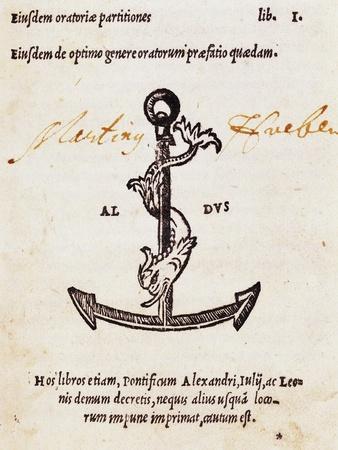 Eiusdem oratoriæ partitiones lib. I.
Eiusdem de optimo genere oratorum præfatio quædam.
Martiny Hueber
AL DVS
Hos libros etiam, Pontificum Alexandri, Iulij, ac Leo-
nis demum decretis, nequis alius usquã loco-
rum impune imprimat, cautum est.